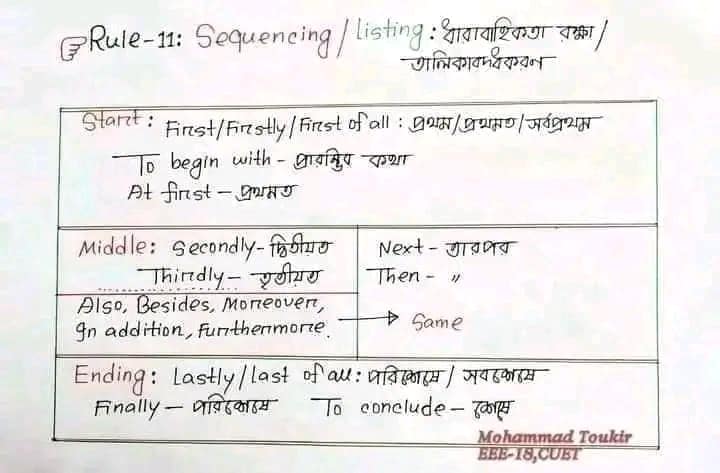 Rule-11: Sequencing/listing: ধারাবাহিকতা রক্ষা/
তালিকাবদ্ধকরণ
Start: First/Firstly/First of all: প্রথম/প্রথমত/সর্বপ্রথম
To begin with - প্রারম্ভিক কথা
At first - প্রথমত
Middle: Secondly - দ্বিতীয়ত
Thirdly - তৃতীয়ত
Next - তারপর
Then - "
Also, Besides, Moreover,
In addition, Furthermore. → Same
Ending: Lastly/last of all: পরিশেষে/সবশেষে
Finally - পরিশেষে To conclude - শেষে
Mohammad Toukir
EEE-18,CUET